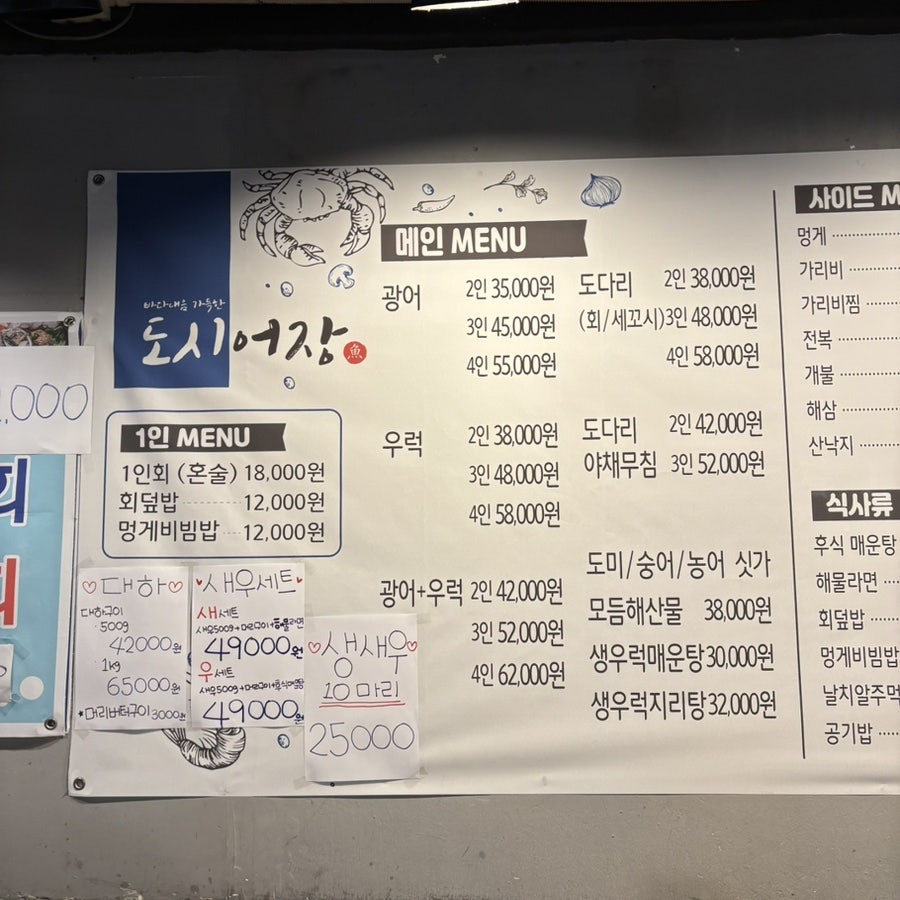 ,000
회
회
바다내음 가득한
도시어장
魚
1인 MENU
1인회 (혼술) 18,000원
회덮밥 12,000원
멍게비빔밥 12,000원
대하
대하구이
500g
42000원
1kg
65000원
*머리버터구이 3000원
새우세트
새세트
새우500g+머리구이+해물라면
49000원
우세트
새우500g+머리구이+후식매운탕
49000원
생새우
10마리
25000
메인 MENU
광어 2인 35,000원
3인 45,000원
4인 55,000원
우럭 2인 38,000원
3인 48,000원
4인 58,000원
광어+우럭 2인 42,000원
3인 52,000원
4인 62,000원
도다리 2인 38,000원
(회/세꼬시) 3인 48,000원
4인 58,000원
도다리 2인 42,000원
야채무침 3인 52,000원
도미/숭어/농어 싯가
모듬해산물 38,000원
생우럭매운탕 30,000원
생우럭지리탕 32,000원
사이드 M
멍게
가리비
가리비찜
전복
개불
해삼
산낙지
식사류
후식 매운탕
해물라면
회덮밥
멍게비빔밥
날치알주먹
공기밥